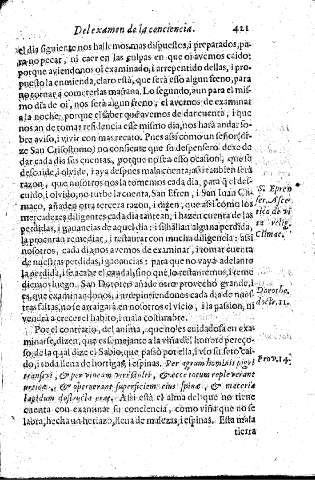 Del examen de la conciencia. 421
el dia siguiente nos hallemos mas dispuestos, i preparados, pa-
ra no pecar, ni caer en las culpas en que oi avemos caido:
porque aviendonos oi examinado, i arrepentido dellas, i pro-
puesto la enmienda, claro està, que serà esso algun freno, para
no tornar a cometerlas mañana. Lo segundo, aun para el mis-
mo dia de oi, nos serà algun freno, el avernos de examinar
a la noche, porque el saber que avemos de dar cuenta, i que
nos an de tomar residencia esse mismo dia, nos harà andar so-
bre aviso, i vivir con mas recato. Pues assi como un señor (di-
ze San Crisostomo) no consiente que su despensero dexe de
dar cada dia sus cuentas, porque no sea esso ocasion, que se
descuide, i olvide, i vaya despues mala cuenta; assi tambien serà
razon, que nosotros nos la tomemos cada dia, para q̃ el des-
cuido, i olvido, no turbe la cuenta. San Efren, i San Iuan Cli-
maco, añaden otra tercera razon, i dizen, que assi como los
mercaderes diligentes cada dia tantean, i hazen cuenta de las
perdidas, i ganancias de aquel dia: i si hallan alguna perdida,
la procuran remediar, i restaurar con mucha diligencia: assi
nosotros, cada dia nos avemos de examinar, i tomar cuenta
de nuestras perdidas, i ganancias: para que no vaya adelante
la perdida, i se acabe el caudal, sino que lo restauremos, i reme-
diemos luego. San Doroteo añade otro provecho grande, i
es, que examinandonos, i arrepintiendonos cada dia de nues-
tras faltas, no se arraigarà en nosotros el vicio, i la passion, ni
vendrà a crecer el habito, i mala costumbre.
Por el contrario, del anima, que no es cuidadosa en exa-
minarse, dizen, que es semejante a la viña del hombre pereço-
so, de la qual dize el Sabio, que passò por ella, i vio su seto cai-
do, i toda llena de hortigas, i espinas. Per agrum hominis pigri
transivi, & per vineam viri stulti, & ecce totum repleverant
urticæ, & operuerant superficiem eius spinæ, & maceria
lapidum destructa erat. Assi està el alma del que no tiene
cuenta con examinar su conciencia, como viña que no se
labra, hecha un heriazo, llena de malezas, i espinas. Esta mala
tierra
S. Efren
ser. Asce-
tico de vi
ta relig.
Climac.
Dorothe.
doctr. 11.
Prov. 14.